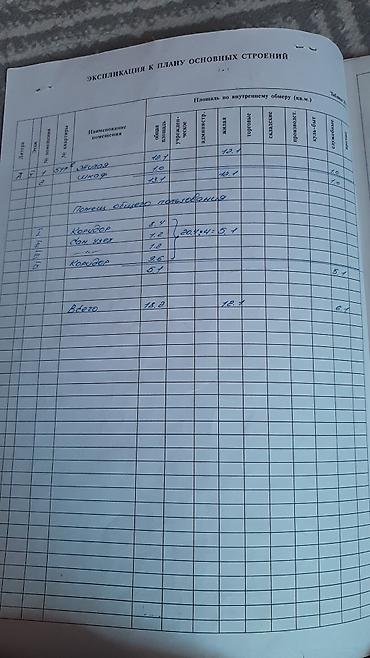 ЭКСПЛИКАЦИЯ К ПЛАНУ ОСНОВНЫХ СТРОЕНИЙ
Площадь по внутреннему обмеру (кв.м.)
Литера
Этаж
№ помещения
№ квартиры
Наименование помещения
общая площадь
учрежден-ческое
администр.
жилая
торговые
складские
производст.
культ-быт
служебные
1 жилая 12.1 12.1
2 шкаф 1.0 1.0
13.1 12.1 1.0
Помещ общего пользования
Коридор 8.4
Сан узел 1.2
—"— 1.2
Коридор 9.6
5.1 5.1
Всего 18.2 12.1 6.1